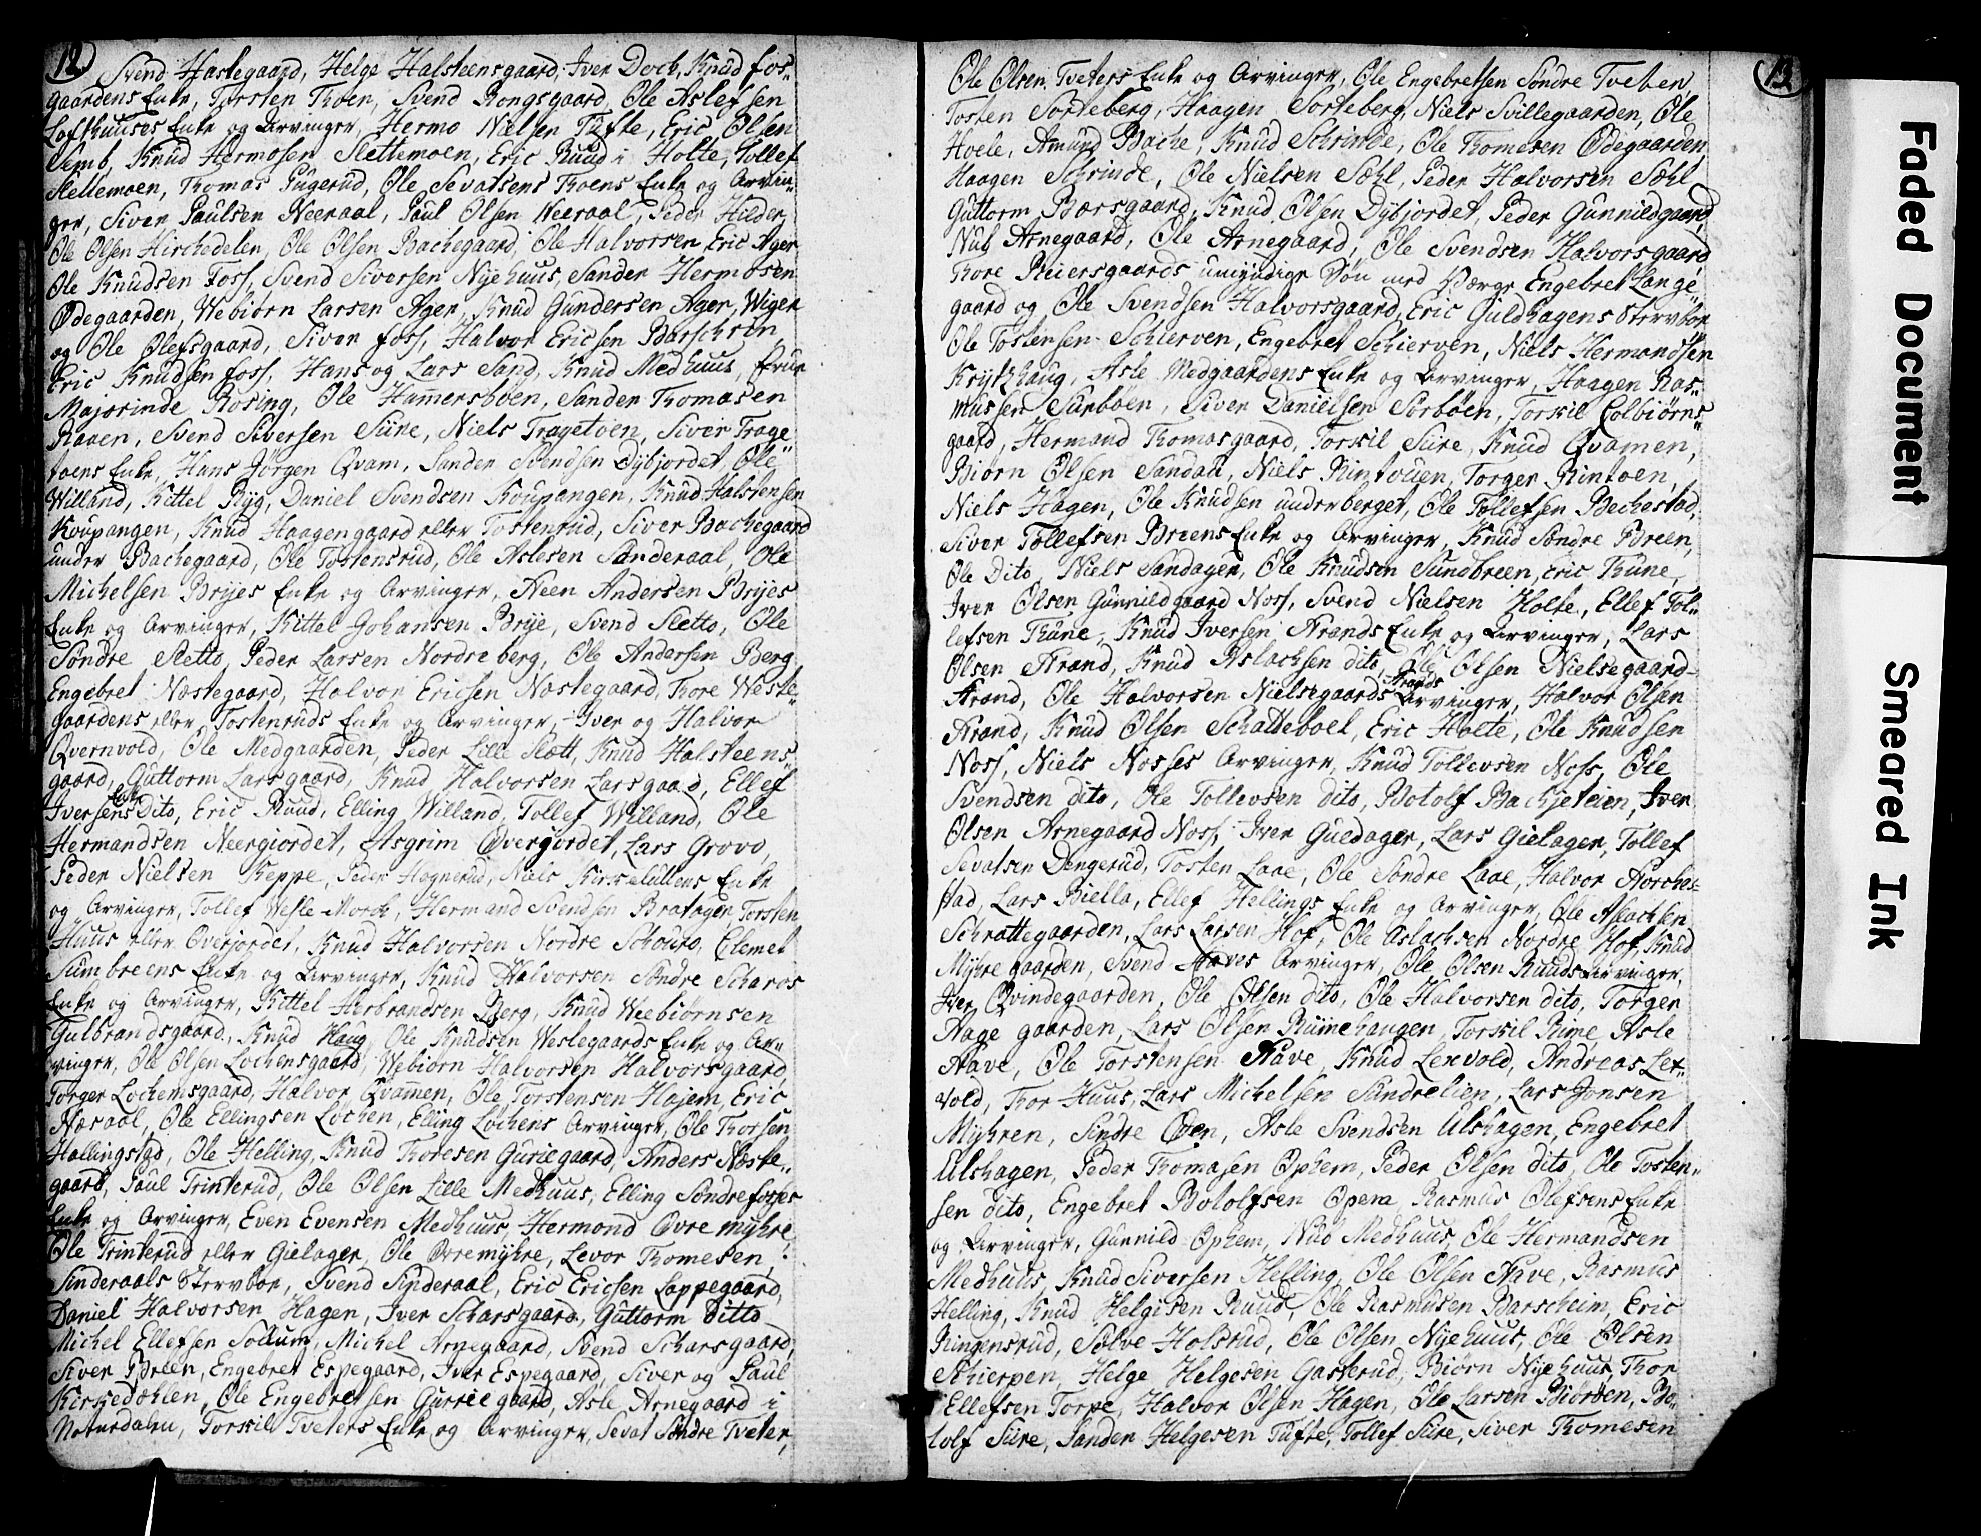 12
Svend Hastegaard, Helge Halsteensgaard, Iver Dock, Knud fos„
gaardens Enke, Torsten Thoen, Svend Rongsgaard, Ole Aslefsen
Lofthuuses Enke og Arvinger, Hermo Nielsen Tufte, Eric Olsen
Semb, Knud Hermosen Slettemoen, Eric Ruud i Holte, Tollef
Slettemoen, Thomas Pugerud, Ole Sevatsens Thoens Enke og Arvin„
ger, Siver Paulsen Neeraal, Paul Olsen Neeraal, Peder Hilder,
Ole Olsen Kirchedelen, Ole Olsen Bachegaard, Ole Halvorsen Eric Ager
Ole Knudsen Foss, Svend Siversen Nyehuus, Sander Hermosen
Ødegaarden, Webiørn Larsen Ager, Knud Gundersen Ager, Wiger
og Ole Olefsgaard, Siver foss, Halvor Ericsen
Eric Knudsen foss, Hans og Lars Sand, Knud Medhuus, Frue
Majorinde Rosing, Ole Hammersbøen, Sander Thomasen
Raaen, Svend Siversen Siire, Niels Tragetven, Siver Trage„
toens Enke, Hans Jörgen Qvam, Sander Svendsen Dybjordet, Ole
Willand, Kittel Ryg, Daniel Svendsen Koupangen, Knud Halstensen
Koupangen, Knud Haagengaard eller Tostenrud, Siver Bachegaard
under Bachegaard, Ole Tostensrud, Ole Aslesen Sanderaal, Ole
Michelsen Bryes Enke og Arvinger, Neen Andersen Bryes
Enke og Arvinger, Kittel Johansen Brye, Svend Sletto, Ole
Søndre Sletto, Peder Larsen Nordreberg, Ole Andersen Berg,
Engebret Næstegaard, Halvor Ericsen Næstegaard, Thore Weste„
gaardens eller Tostenruds Enke og Arvinger, Iver og Halvor
Qvernvold, Ole Medgaarden, Peder Lille Slett, Knud Halsteens„
gaard, Guttorm Larsgaard, Knud Halvorsen Larsgaard, Ellef
Iversens Enke Dito, Eric Ruud, Elling Willand, Tollef Willand, Ole
Hermandsen Neergiordet, Asgrim Overgordet, Lars Grovo,
Peder Nielsen Keppe, Peder Hognerud, Niels Enke
og Arvinger, Tollef Wesle Morck, Hermand Svendsen Bratager Torsten
Huus eller Overjordet, Knud Halvorsen Nordre Schouro, Clemet
Sumbreens Enke og Arvinger, Knud Halvorsen Søndre Scharos
Enke og Arvinger, Kittel Herbrandsen Berg, Knud Weebiørnsen
Gulbrandsgaard, Knud Haug, Ole Knudsen Weslegaards Enke og Ar„
vinger, Ole Olsen Lochensgaard, Webiørn Halvorsen Halvorsgaard,
Torger Lochemsgaard, Halvor Qvammen, Ole Torstensen Hajem, Eric
Næraal, Ole Ellingsen Lochen, Elling Løchens Arvinger, Ole Thorsen
Hallingstad, Ole Helling, Knud Thoresen Guriegaard, Anders Næste„
gaard, Paul Trinterud, Ole Olsen Lille Medhuus, Elling Søndre fosses
Enke og Arvinger, Even Evensen Medhuus, Hermond Øvre myhre
Ole Trinterud eller Gielager, Ole Ovremyhre, Levor Thomesen,
Sinderaals Stervboe, Svend Sinderaal, Eric Ericsen Loppegaard,
Daniel Halvorsen Hagen, Iver Scharsgaard, Guttorm Ditto
Michel Ellefsen Sollum, Michel Arnegaard, Svend Scharsgaard,
Siver Breen, Engebret Espegaard, Iver Espegaard, Siver og Paul
Kirkedæhlen, Ole Engebretsen Gurriegaard, Asle Arnegaard i
Noturdalen, Torkil Tveters Enke og Arvinger, Sevat Søndre Tveter,
13
Ole Olsen Tveters Enke og Arvinger, Ole Engebretsen Søndre Tveten
Tosten Sorteberg, Haagen Sorteberg, Niels Svillegaarden, Ole
Hoele, Amund Bache, Knud Schrinde, Ole Thomesen Ødegaarden
Haagen Schrinde, Ole Nielsen Sæhl, Peder Halvorsen Sæhl
Guttorm Børsgaard, Knud Olsen Dybjordet, Peder Gunnildgaard
Nub Arnegaard, Ole Arnegaard, Ole Svendsen Halvorsgaard
Thore Reiersgaards umyndige Søn med Værge Engebret Lange„
gaard og Ole Svendsen Halvorsgaard, Eric Guldhagens Stervboe
Ole Tostensen Schierven, Engebret Schierven, Niels Hermandsen
Krytzhaug, Asle Medgaardens Enke og Arvinger, Haagen Ras„
mussen Sunboen, Siver Danielsen Sorböen, Torkil Colbiørns„
gaard, Hermand Thomasgaard, Torkil Siire, Knud Qvamen,
Biørn Olsen Sandau, Niels Rintouen, Torger Rintoen,
Niels Hagen, Ole Knudsen underberget, Ole Tollefsen Bechestad,
Siver Tollefsen Breens Enke og Arvinger, Knud Søndre Breen,
Ole Dito, Niels Sandager, Ole Knudsen Sundbreen, Eric Thune,
Iver Olsen Gunnildgaard Noss, Svend Nielsen Holte, Ellef Tol„
lefsen Thune, Knud Iversen Strands Enke og Arvinger, Lars
Olsen Strand, Knud Aslachsen dito, Ole Olsen Nielsegaard
Strand, Ole Halvorsen Nielsegaards Strands Arvinger, Halvor Olsen
Strand, Knud Olsen Schatteboel, Eric Holte, Ole Knudsen
Noss, Niels Nosses Arvinger, Knud Tollevsen Noss, Ole
Svendsen dito, Ole Tollevsen dito, Botolf Bachjeteien, Iver
Olsen Arnegaard Noss, Iver Guedager, Lars Gielager, Tollef
Sevatsen Dengerud, Tosten Laae, Ole Søndre Laae, Halvor Storche„
stad, Lars Biella, Ellef Hellings Enke og Arvinger, Ole Aslachsen
Schrattegaarden, Lars Larsen Hof, Ole Aslachsen Nordre Hof, Knud
Myhregaarden, Svend Staves Arvinger, Ole Olsen Ruuds Arvinger,
Iver Qvindegaarden, Ole Olsen dito, Ole Halvorsen dito, Torger
Hagegaarden, Lars Olsen Rumehaugen, Torkil Rime, Asle
Stave, Ole Torstensen Stave, Knud Lenvold, Andreas Len„
vold, Thor Huus, Lars Michelsen Sundrelien, Lars Jonsen
Myhren, Sindre Øen, Asle Svendsen Ulshagen, Engebret
Ulshagen, Peder Thomasen Ophem, Peder Olsen dito, Ole Tosten„
sen dito, Engebret Botolfsen Opera, Rasmus Olefsens Enke
og Arvinger, Gunnild Ophem, Nub Medhuus, Ole Hermandsen
Medhuus, Knud Siversen Helling, Ole Olsen Stave, Rasmus
Helling, Knud Helgesen Ruud, Ole Rasmusen Barscheim, Eric
Ringensrud, Sølve Holsrud, Ole Olsen Nyehuus, Ole Olsen
Schierpen, Helge Helgesen Gasterud, Biørn Nyehuus, Thor
Ellefsen Torpe, Halvor Olsen Hagen, Ole Larsen Biørben, Bo„
tolf Siire, Sander Helgesen Tufte, Tollef Siire, Siver Thomesen
Faded Document
Smeared Ink